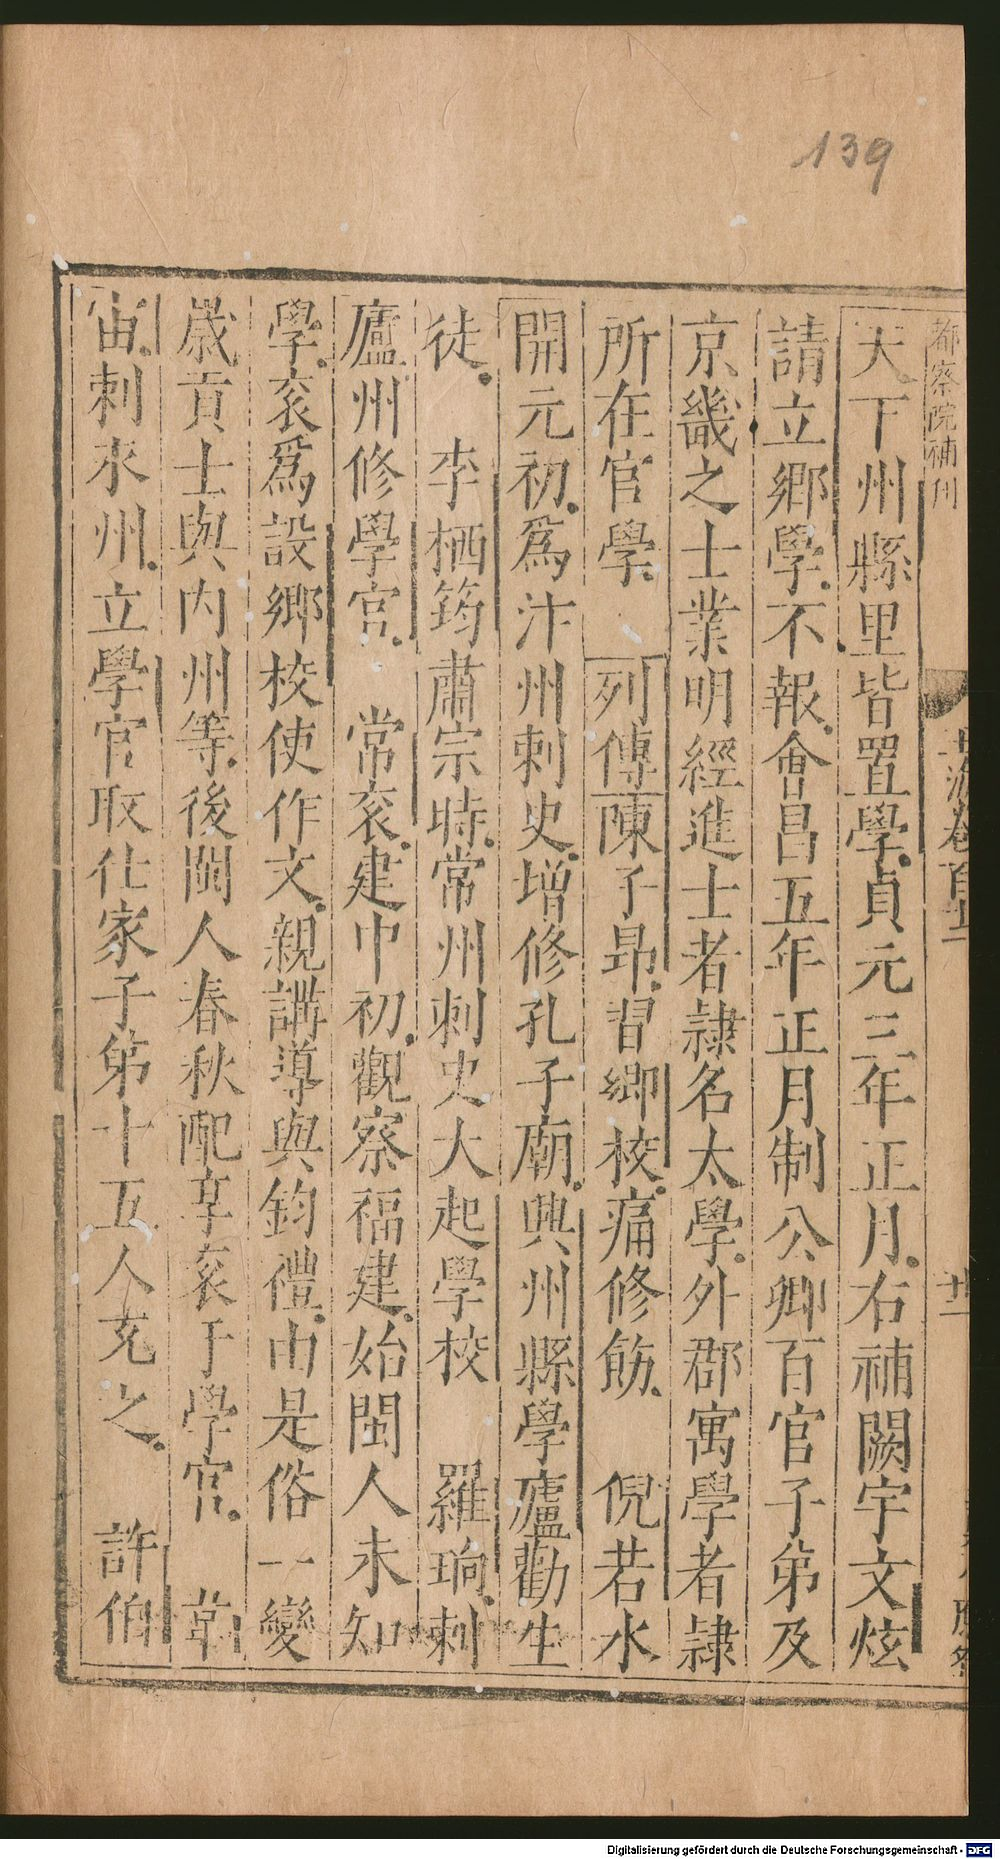 139
都察院補刊
天下州縣里皆置學貞元三年正月右補闕宇文炫
請立鄉學不報會昌五年正月制公卿百官子第及
京畿之士業明經進士者隸名太學外郡寓學者隸
所在官學　列傳陳子昂習鄉校痛修飭　倪若水
開元初爲汴州刺史增修孔子廟興州縣學廬勸生
徒　李栖筠肅宗時常州刺史大起學校　羅珦刺
廬州修學官　常袞建中初觀察福建始閩人未知
學袞爲設鄉校使作文親講導與鈞禮由是俗一變
歲貢士與内州等後閩人春秋配享袞于學官　韋
宙刺永州立學官取仕家子第十五人充之　許伯
Digitalisierung gefördert durch die Deutsche Forschungsgemeinschaft - DFG